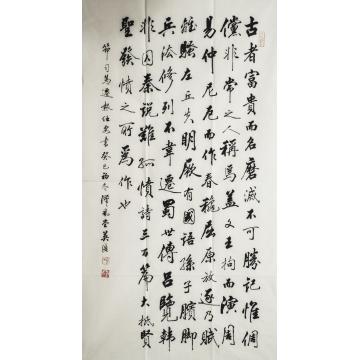 古者富貴而名磨滅不可勝記惟倜
儻非常之人稱焉蓋文王拘而演周
易仲尼厄而作春穐屈原放逐乃賦
離騷左丘失明厥有國語孫子臏腳
兵法修列不韋遷蜀世傳呂覽韓
非囚秦說難孤憤詩三百篇大抵賢
聖發憤之所為作也
節司馬遷報任安書癸巳初冬